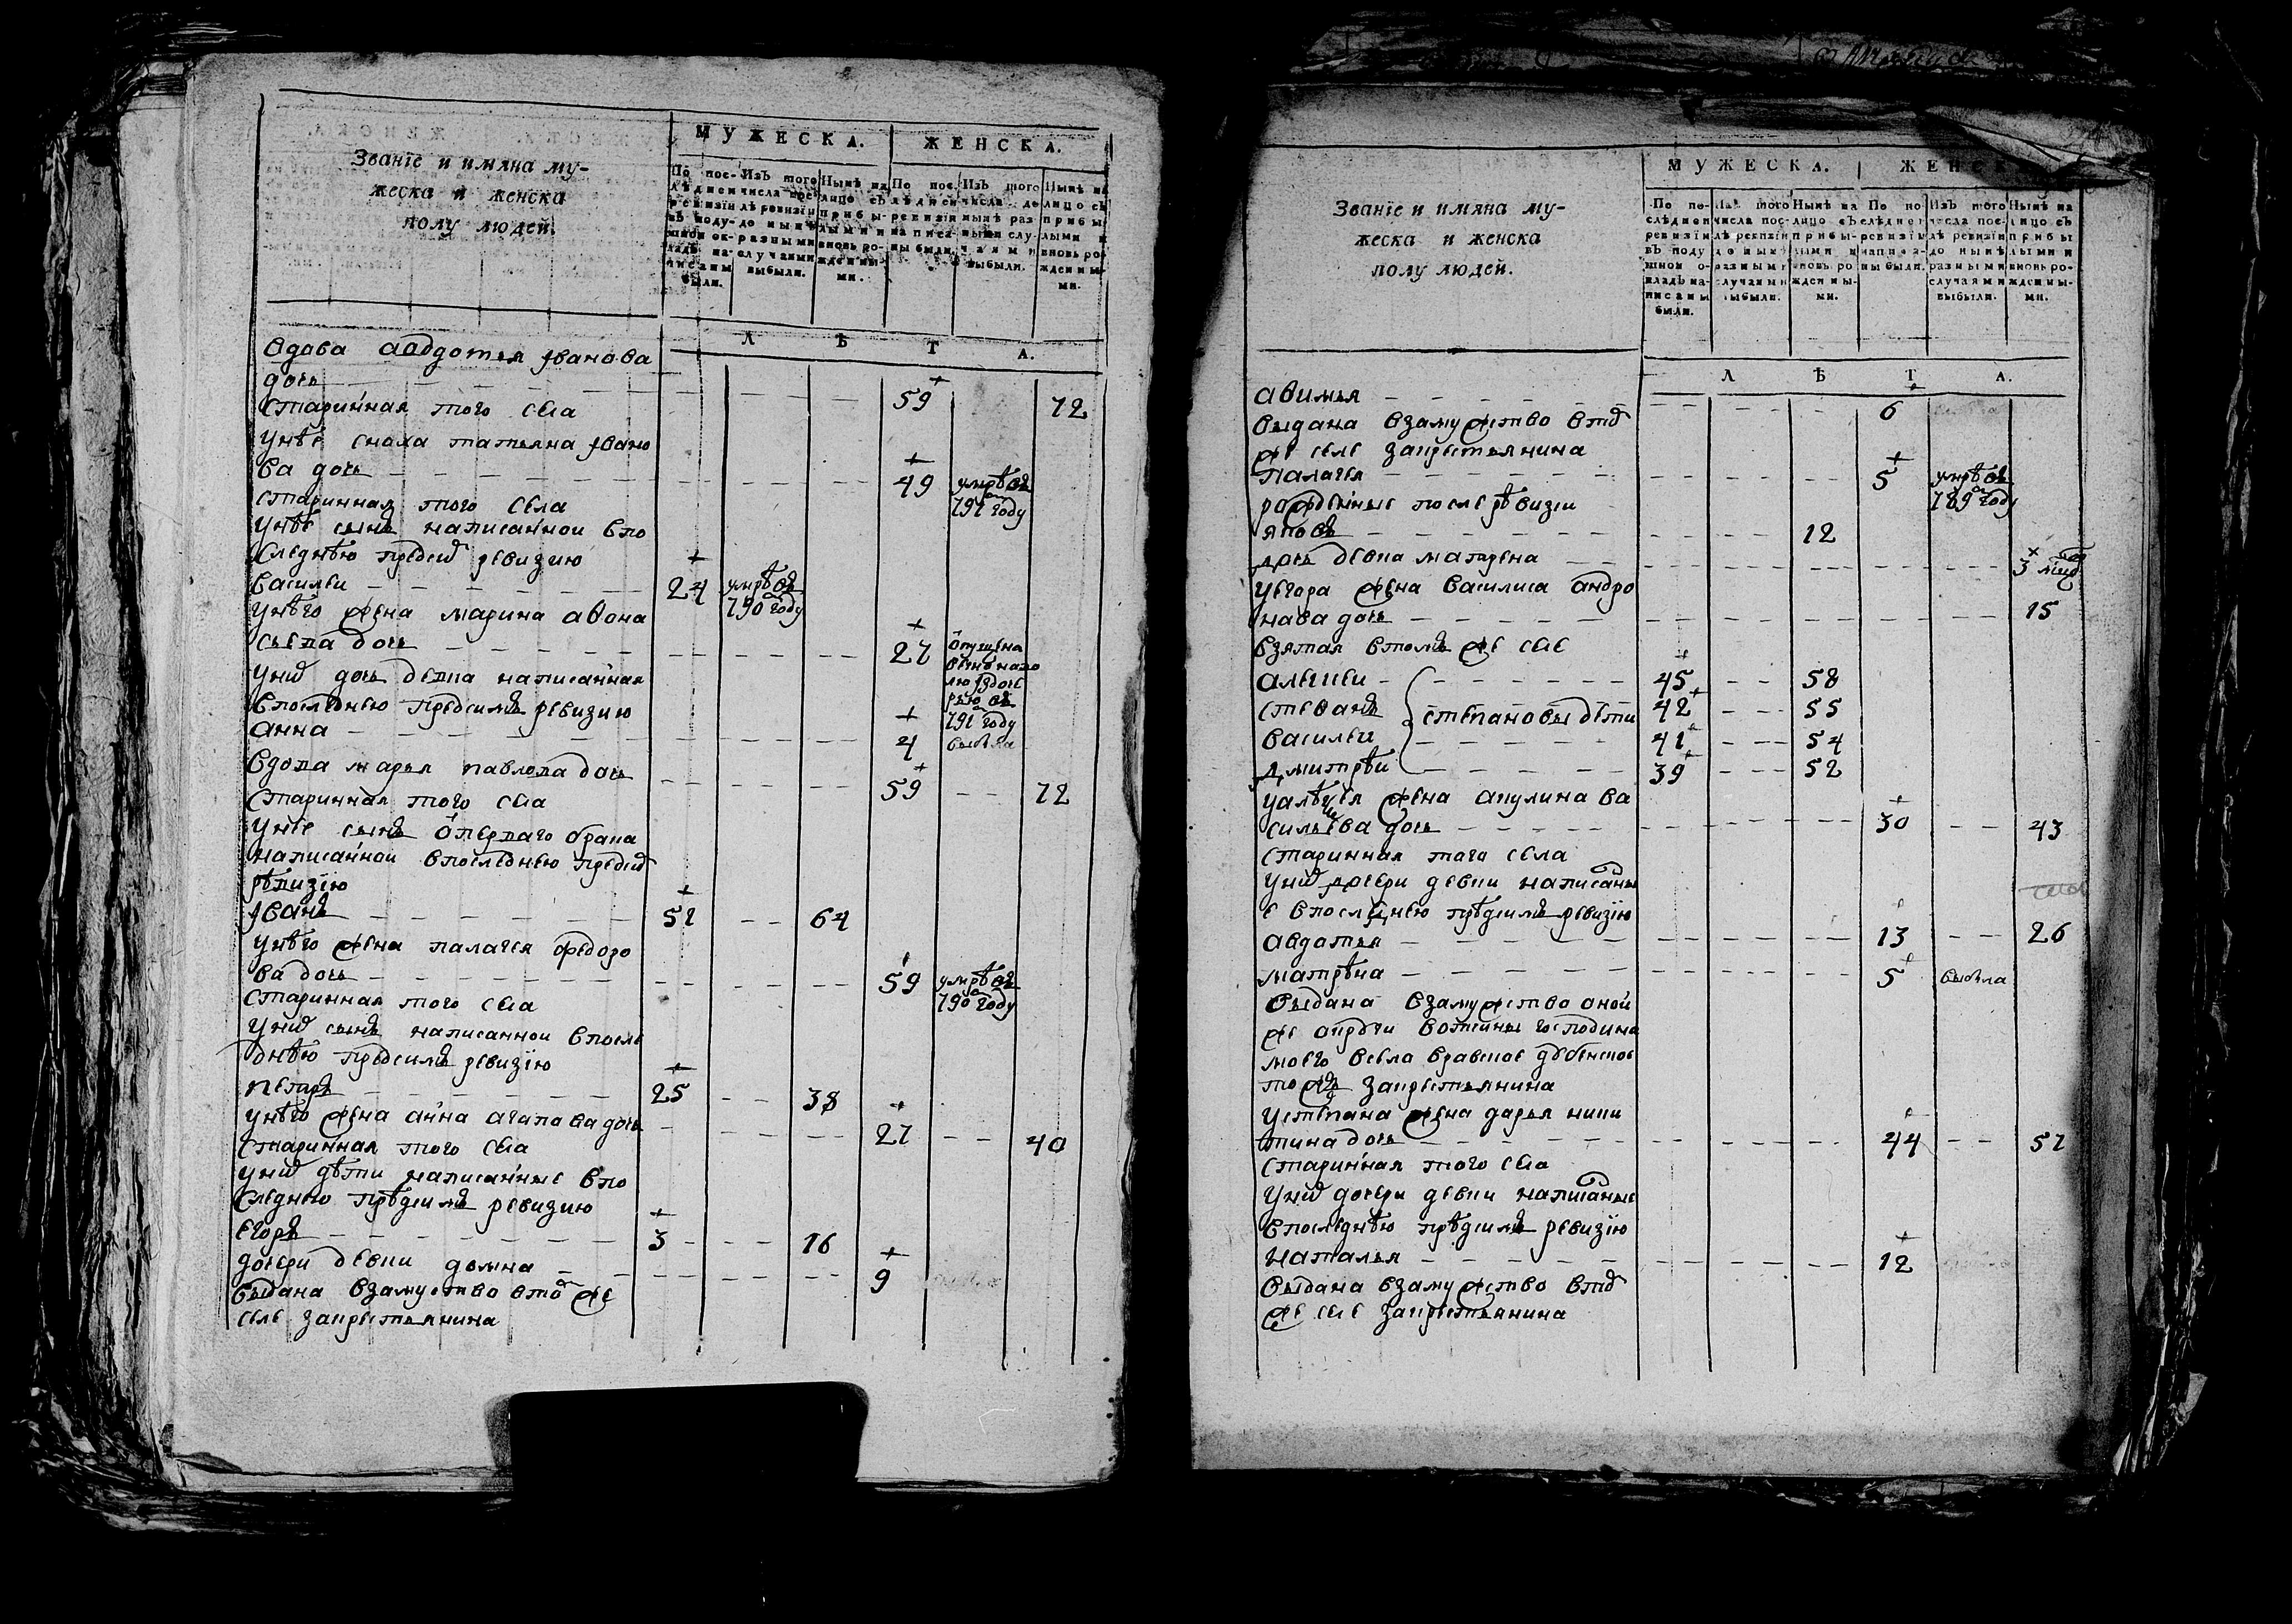 Званїе и имяна му-
жеска и женска
полу людей.
МУЖЕСКА.
ЖЕНСКА.
По пос-
лѣдней
ревизїи
въ поду-
шной ок-
ладъ на-
писаны
были.
Изъ того
числа пос-
лѣ ревизїи
до нынѣ
разными
случаями
выбыли.
Нынѣ на
лицо съ
прибы-
лыми и
вновь ро-
жденны-
ми.
По пос-
лѣдней
ревизїи
написа-
ны были.
Изъ того
числа до
нынѣ раз
ными слу-
чаями
выбыли.
Нынѣ на
лицо съ
прибы
лыми и
вновь ро-
жденны-
ми.
Л Ѣ Т А.
вдова авдотья ивановa
дочь 59 72
старинная того села
унѣе сноха татьяна ивано
ва дочь 49 умрѣ въ 791 году
старинная того села
унѣе сынъ написаннои впо
следнѣю предсиⷨ ревизию
василеи 24 умрѣ въ 790 году
унѣго жена марина афона
сьева дочь 27 опущена
вечно на
лю
791 году
унеи дочь девка написанная
впоследнѣю предсимъ ревизию
анна 4 выбыла
вдова марья павлова дочь 59 72
старинная того села
унѣе сынъ ѿперваго брака
написаннои впоследнѣю предсиⷨ
рѣвизїю
иванъ 51 64
унѣго жена палагея федоро
ва дочь 59 умрѣ въ 790 году
старинная того села
унеи сынъ написаннои впосле
днѣю предсимъ ревизїю
петръ 25 38
унѣго жена анна агапова дочь 27 40
старинная того села
унеи дѣти написанные впо
следнюю прѣдсимъ ревизию
егоръ 3 16
дочери девки домна 9
выдана взамуство втоⷨ же
селе закрестьянина
Званїе и имяна му-
жеска и женска
полу людей.
МУЖЕСКА.
ЖЕНСК
По по-
слѣдней
ревизїи
въ поду
шной о-
кладъ на-
писаны
были.
Изъ того
числа пос-
лѣ ревизїи
до нынѣ
разными
случаями
выбыли.
Нынѣ на
лицо съ
прибы-
лыми и
вновь ро
жденны-
ми.
По по
слѣдней
ревизїи
написа-
ны были.
Изъ того
числа пос-
лѣ ревизїи
до нынѣ
разными
случаями
выбыли.
Нынѣ на
лицо съ
прибы
лыми и
вновь ро-
жденны-
ми.
Л Ѣ Т А.
авимья 6
выдана взамужство втоⷨ
же селе закрестьянина
палагея 5 умрѣ въ 789 году
рожденные после рѣвизии
яковъ 12
дочь девка матрена 3
уегора жена василиса андро
нава дочь 15
взятая втомъ же селе
алексеи 45 58
стефанъ степановы дети 42 55
василеи 41 54
дмитреи 39 52
уалѣксея жена акулина ва
сильева дочь 30 43
старинная того села
унеи дочери девки написаны
е впоследнѣю прѣдсимъ ревизїю
авдотья 13 26
матрѣна 5 выбыла
выдана взамужство оной
же вотчины господина
моего всела
закрестьянина
устепана жена дарья ники
тина дочь 44 57
старинная того села
унеи дочери девки написаные
впоследнѣю прѣдсимъ ревизїю
наталья 12
выдана взамужство втоⷨ
же селе закрестьянина